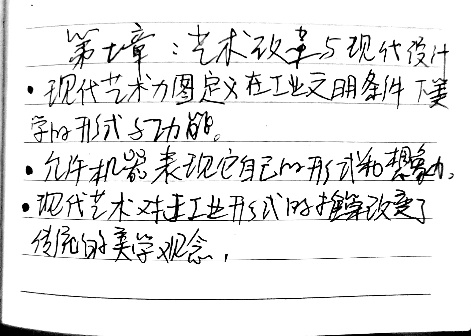 第七章：艺术改革与现代设计
• 现代艺术力图定义在工业文明条件下美
学的形式与功能。
• 允许机器表现它自己的形式和想象力。
• 现代艺术对于工业形式的推崇改变了
传统的美学观念，